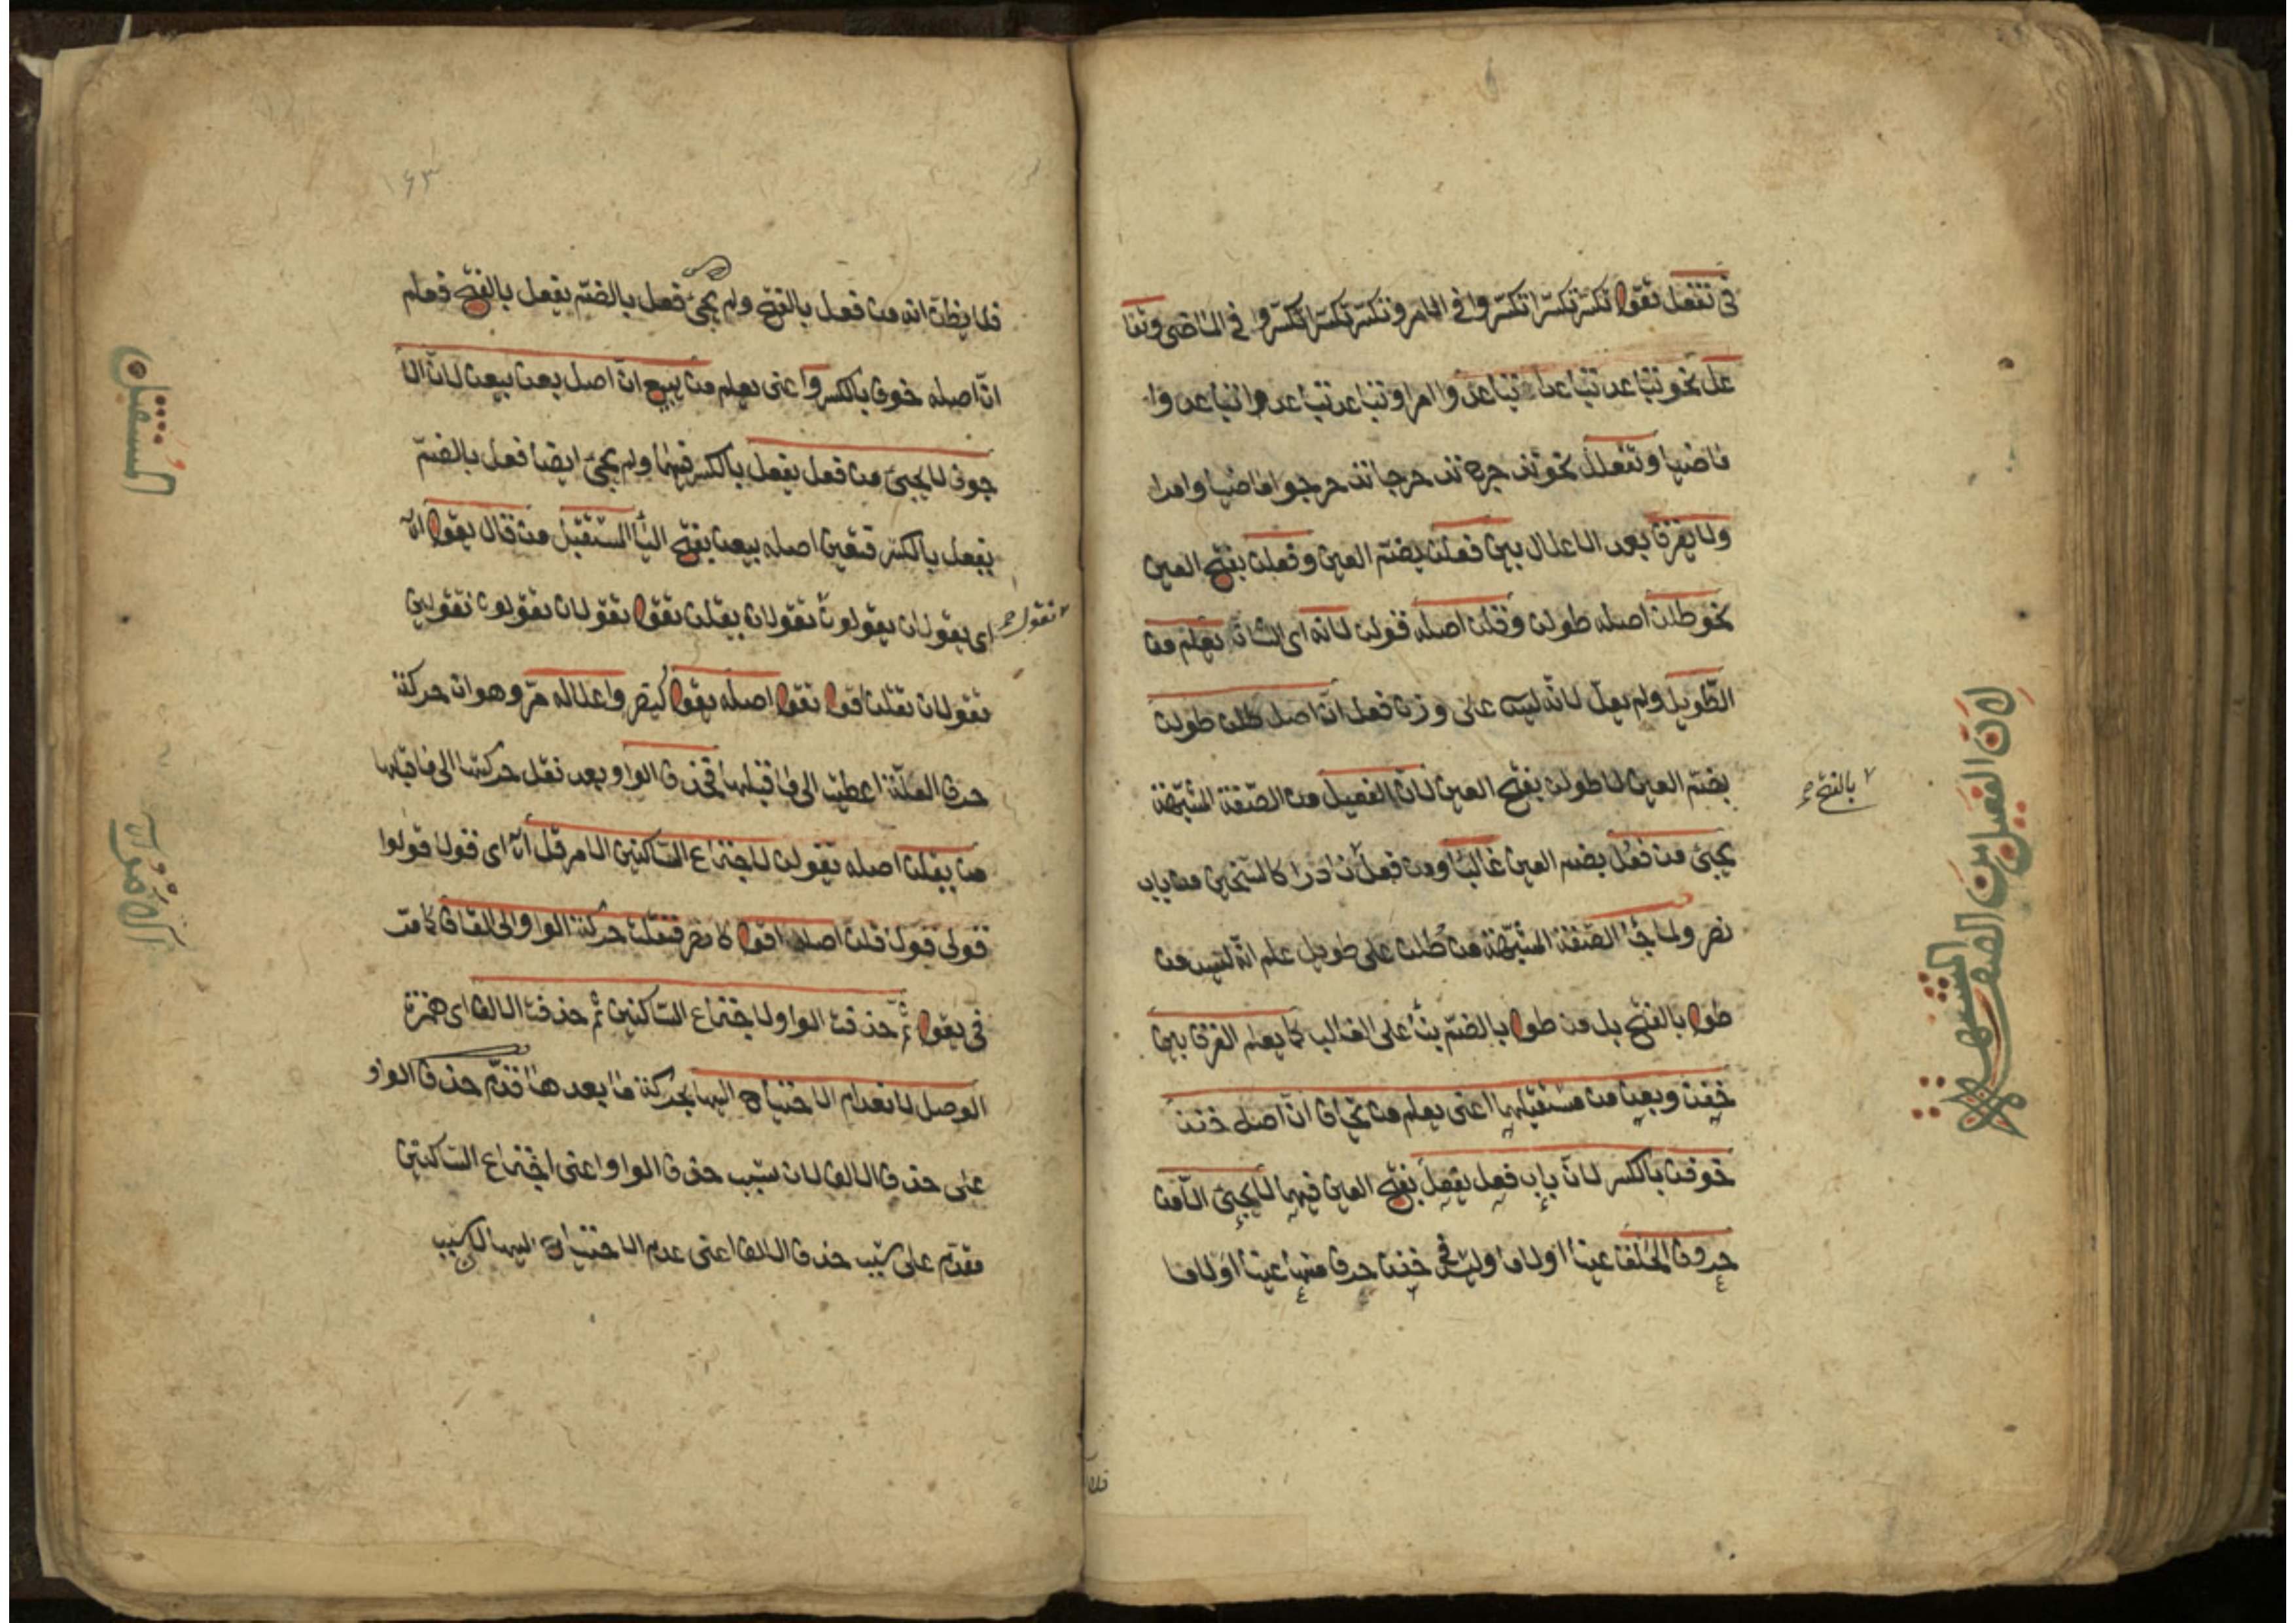 فى تفعل تقول تكسّر تكسّرا تكسّروا فى الامر وتكسّر تكسّرا تكسّروا فى الماضى وتفا
عل نحو تباعد تباعدا تباعدوا امرا وتباعد تباعدا تباعدوا
ماضيا وتفعلل نحو تدحرج تدحرجا تدحرجوا ماضيا وامرا
ولا يفرق بعد الاعلال بين فعلت بضم العين وفعلت بفتح العين
نحو طلت اصله طولت وقلت اصله قولت لانه اى الشان يعلم من
الطّويل ولم يعلّ لانّه ليس على وزن فعل انّ اصل طلت طولت
بضمّ العين لا طولت بفتح العين لانّ الفعيل من الصّفة المشبّهة
يجئ من فعُل بضم العين غالبا ومن فعل نادرا كالشيخين من باب
نصر ولما جا الصّفة المشبّهة من طُلت على طويل علم انّه ليس من
طول بالفتح بل من طول بالضمّ بناً على الغالب كما يعلم الفرق بين
خفت وبعت من مستقبلهما اعنى يعلم من يخاف انّ اصل خفت
خوفت بالكسر لانّ باب فعل يفعل بفتح العين فيهما لا يجئ الّا من
حروف الحلق عيناً او لاما وليس فى خفت حرف منها عيناً او لاما
٧ بالفتح صح
لان الفعيل من الصفة المشبهة
فلا
١٦٣
فلا يظن انه من فعل بالفتح ولم يجئ فعل بالضمّ يفعل بالفتح فعلم
انّ اصله خوف بالكسر واعنى يعلم من يبيع انّ اصل بعت بيعت لانّ الا
جوف لا يجئ من فعل يفعل بالكسر فيهما ولم يجئ ايضا فعل بالضمّ
يفعل بالكسر فتعين اصله بيعت بفتح اليا المستقبل من قال يقول الخ
اى يقولان يقولون تقولان يقلن تقول تقولان تقولون تقولين
٧ تقول صح
تقولان تقلن اقول نقول اصله يقول كينصر واعلاله مرّ وهو ان حركة
حرف العلّة اعطيت الى ما قبلها فحذف الواو بعد نقل حركتها الى ما قبلها
من يقلن اصله يقولن لاجتماع السّاكنين الامر قل الخ اى قولا قولوا
قولى قولا قلن اصله اقول كانصر فنقلت حركة الواو الى القاف كما مرّ
فى يقول ثمّ حذفت الواو لاجتماع السّاكنين ثم حذفت الالف اى همزة
الوصل لانعدام الاحتياج اليها بحركة ما بعدها قدّم حذف الواو
على حذف الالف لان سبب حذف الواو اعنى اجتماع السّاكنين
مقدّم على سبب حذف الالف اعنى عدم الاحتياج اليها لان سبب
المستقبل
الامر